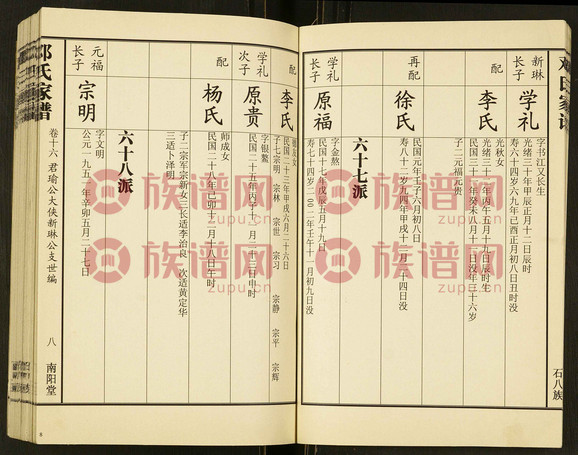 邓氏家谱
新琳
长子
学礼
字书江又长生
光绪三十年甲辰正月十三日辰时
寿六十四岁六九年己酉正月初八日丑时没
配
李氏
光秋女
光绪三十二年丙午五月十九日辰时生
民国三十二年癸未八月十一日没年三十六岁
子二元福元贵
再配
徐氏
民国元年壬子六月初八日
寿八十二岁九四年甲戌十二月二十四日没
六十七派
学礼
长子
原福
字金熬
民国十七年戊辰五月十九日
寿七十四岁二00二年壬午十一月初九日没
配
李氏
民国二十三年甲戌六月二十六日
子七宗明 宗林 宗世 宗习 宗静 宗平 宗辉
学礼
次子
原贵
字银鳌
民国二十五年丙子十二月二十三日申时
配
杨氏
师成女
民国二十八年己卯十二月十八日午时
子二宗军宗新女三长适李治良 次适黄定华
三适卜泽明
六十八派
元福
长子
宗明
字文明
公元一九五一年辛卯五月二十七日
邓氏家谱
卷十六 君瑜公大侠新琳公支世编
八
南阳堂
石八族
族谱网
zupu.cn
族谱网
zupu.cn
族谱网
zupu.cn
族谱网
zupu.cn